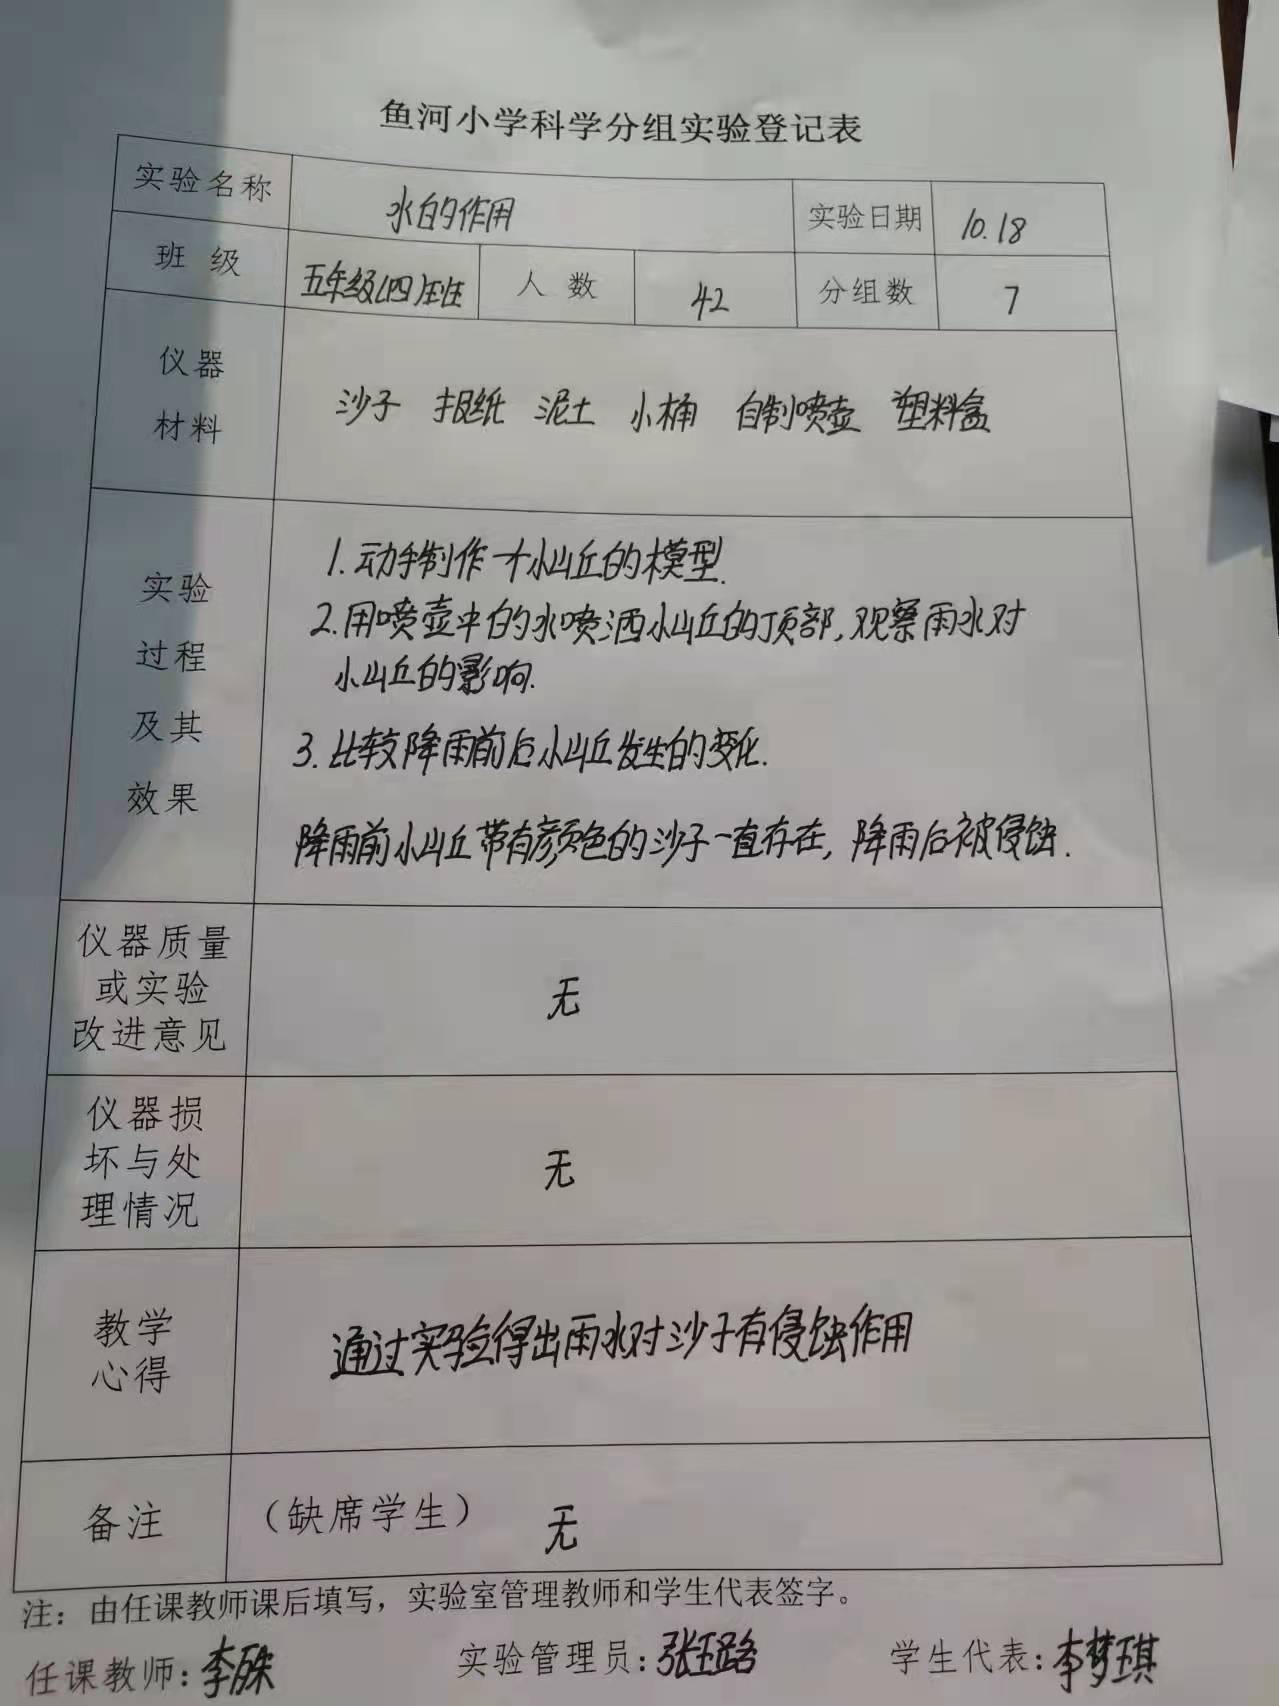 鱼河小学科学分组实验登记表
实验名称 水的作用 实验日期 10.18
班 级 五年级(四)班 人 数 42 分组数 7
仪器
材料
沙子 报纸 泥土 小桶 自制喷壶 塑料盒
实验
过程
及其
效果
1.动手制作一个小山丘的模型.
2.用喷壶中的水喷洒小山丘的顶部,观察雨水对
小山丘的影响.
3.比较降雨前后小山丘发生的变化.
降雨前小山丘带有颜色的沙子一直存在,降雨后被侵蚀.
仪器质量
或实验
改进意见
无
仪器损
坏与处
理情况
无
教学
心得
通过实验得出雨水对沙子有侵蚀作用
备注 (缺席学生) 无
注：由任课教师课后填写，实验室管理教师和学生代表签字。
任课教师:李 实验管理员:张路 学生代表:李梦琪